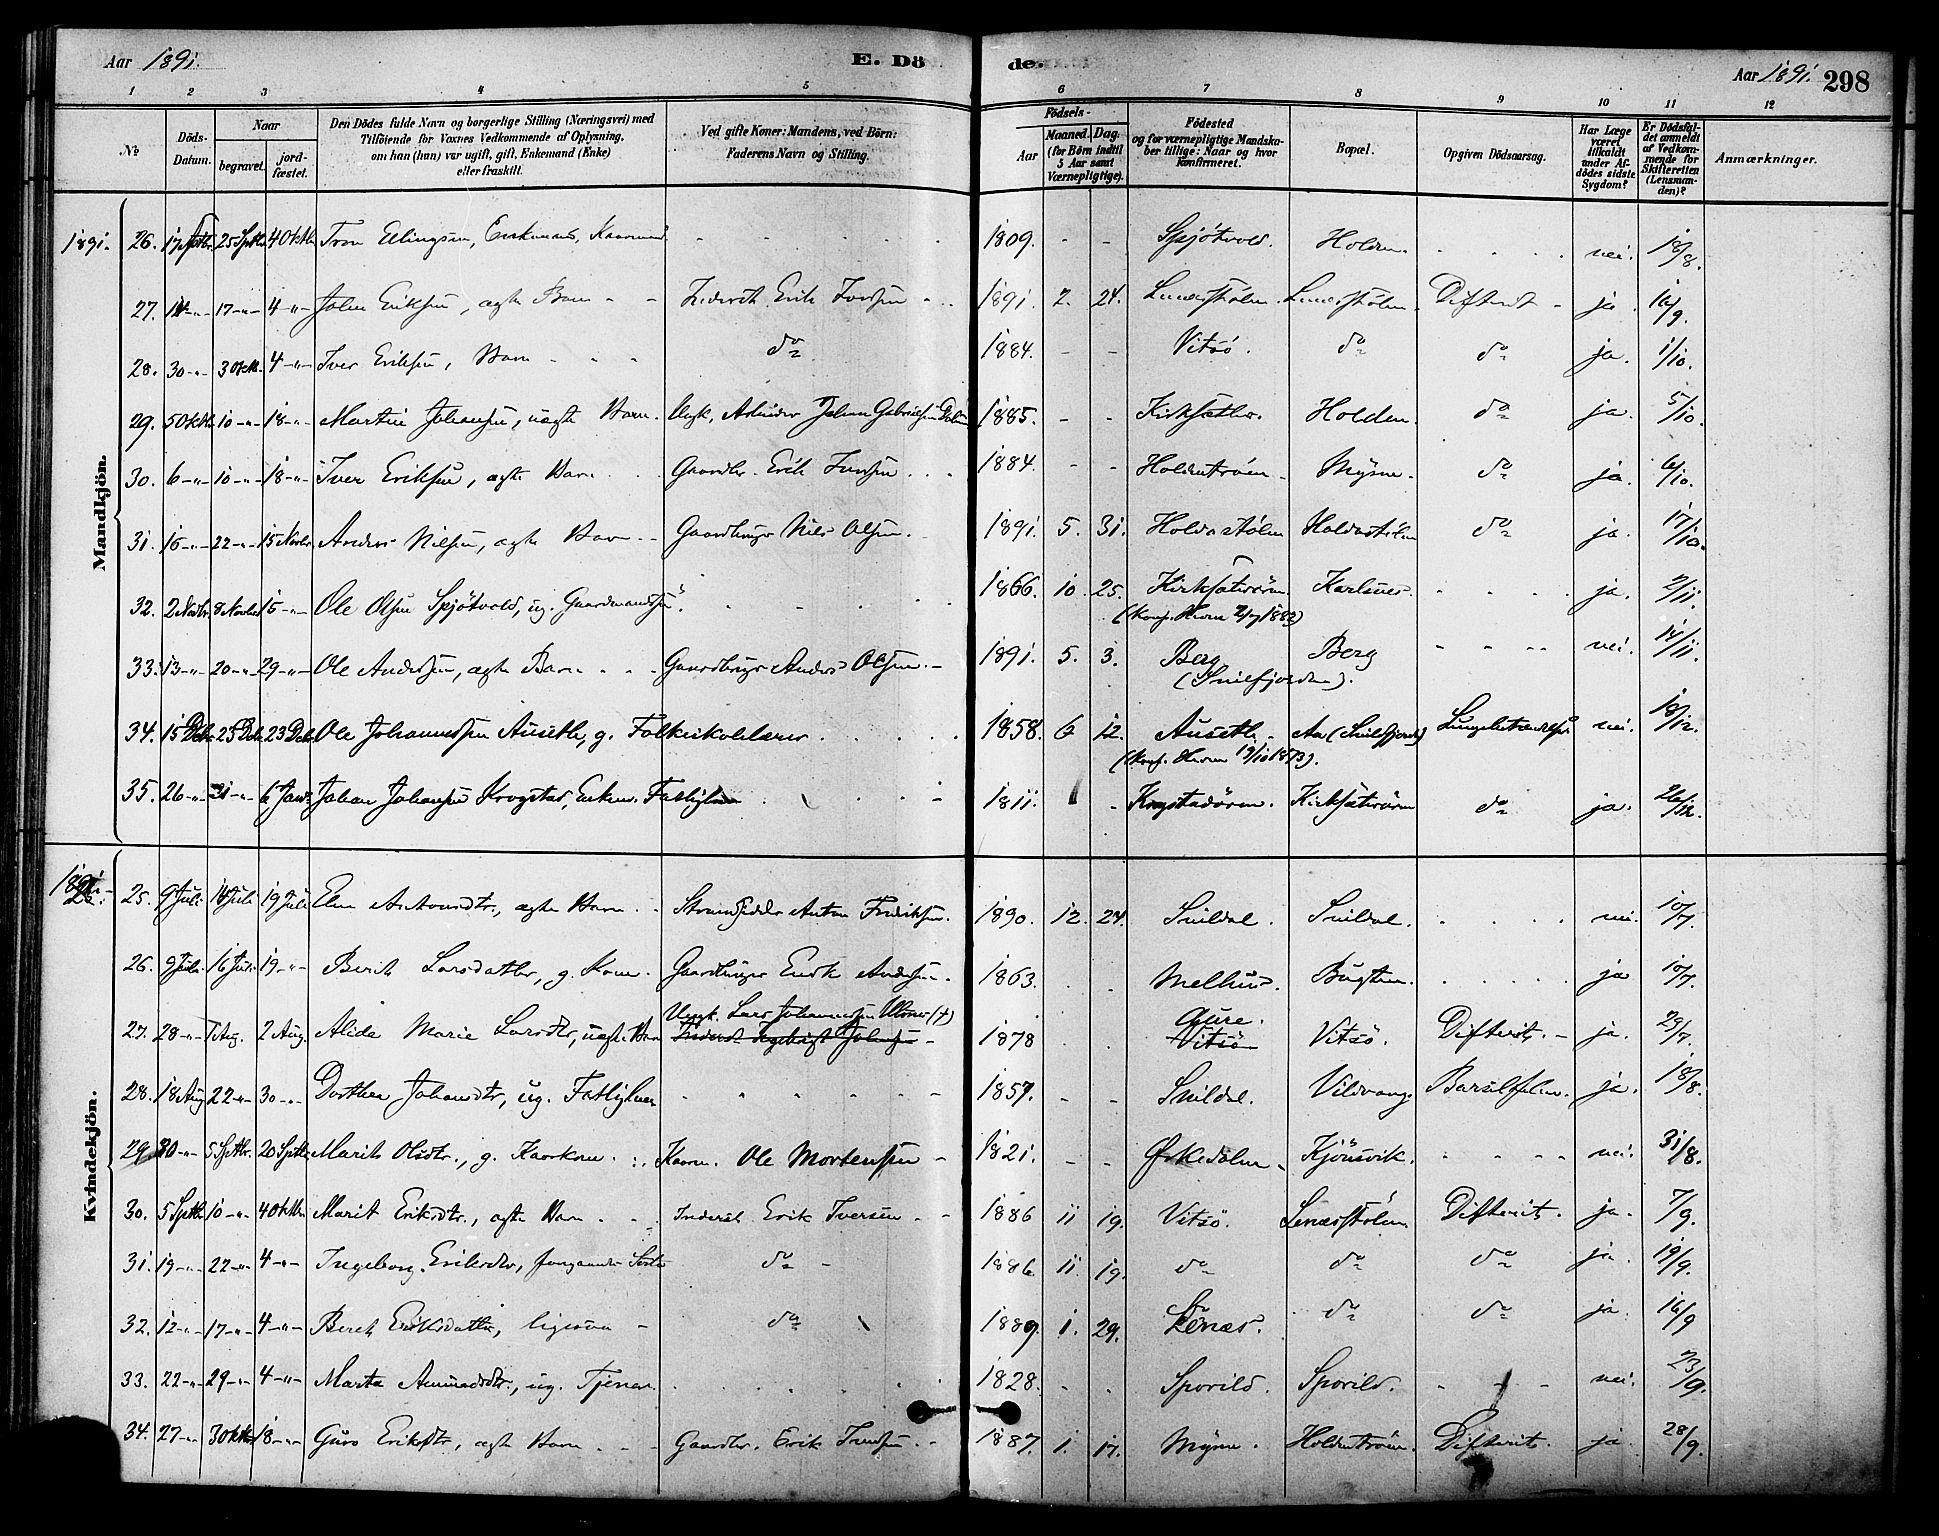 Aar 1891.
E. Dö
de.
Aar 1891. 298
1 2 3 4 5 6 7 8 9 10 11 12
No
Döds-Datum.
Naar
begravet.
jord-fæstet.
Den Dödes fulde Navn og borgerlige Stilling (Næringsvei) med
Tilföiende for Voxnes Vedkommende af Oplysning,
om han (hun) var ugift, gift, Enkemand (Enke)
eller fraskilt.
Ved gifte Koner: Mandens, ved Börn:
Faderens Navn og Stilling.
Födsels-
Aar
Maaned. Dag.
(for Börn indtil
5 Aar samt
Værnepligtige).
Födested
og for værnepligtige Mandska-
ber tillige: Naar og hvor
konfirmeret.
Bopæl.
Opgiven Dödsaarsag.
Har Læge
været
tilkaldt
under Af-
dödes sidste
Sygdom?
Er Dödsfal-
det anmeldt
af Vedkom-
mende for
Skifteretten
(Lensman-
den)?
Anmærkninger.
Mandkjön.
1891. 26. 17 Septbr. 25 Septbr. 4 Oktbr. Tron Ellingsen, Enkemand, - - - 1809. - - Spjøtvold. Holden. - - - nei. 18/8.
27. 14 -"- 17 -"- 4 -"- Johan Eriksen, ægte Barn - - Inderst Erik Iversen - - 1891. 2. 24. Difterit - ja. 16/9.
28. 30 -"- 3 Oktb. 4 -"- Iver Eriksen, Barn - - - do 1884. - - Vitsö. do do ja. 1/10.
29. 5 Oktb. 10 -"- 18 -"- Martin Johansen, uægte Barn. Ungk. Arbeider Johan Gabrielsen 1885. - - Kirksæther. Holden. do ja. 5/10.
30. 6 -"- 10 -"- 18 -"- Iver Eriksen, ægte Barn - Gaardbr. Erik Iversen - - 1884. - - Holdentrøen - Mysen. do ja. 6/10.
31. 16 -"- 22 -"- 15 Novbr. Anders Nilsen, ægte Barn - - Gaardbruger Nils Olsen. - 1891. 5. 31. Holdastølen Holdastølen do ja. 17/10.
32. 2 Novbr. 8 Novbr. 15 -"- Ole Olsen Spjøtvold, ug. Gaardmandssøn. - - - 1866. 10. 25. Kirksæterøren Karlsnes. - - - ja. 2/11.
(Konf. Hevne 2/7 1882)
33. 13 -"- 20 -"- 29 -"- Ole Andersen, ægte Barn - - Gaardbruger Anders Olsen. - 1891. 5. 3. Berg Berg - - - nei. 14/11.
(Snilfjorden).
34. 15 Dcbr. 23 Dcb. 23 Dcb. Ole Johannessen Auseth, g. Folkeskolelærer - - - 1858. 6 12. Ausetli - Aa (Snilfjord) Lungebetændelse nei. 18/12.
(Konf. Hevne 19/10 1873).
35. 26 -"- 31 -"- 6 Jan. Johan Johansen Krogstad, Enkem. Fattiglem - - 1811. - Krogstadøren. Kirksæterøren do ja. 26/12.
Kvindekjön.
1891. 25. 9 Juli 14 Juli 19 Juli Elen Antonsdtr., ægte Barn - - Strandsidder Anton Fredriksen. 1890. 12. 24. Snildal. Snildal. - - - nei. 10/7.
26. 9 Juli 16 Juli 19 -"- Berit Larsdatter, g. Kone. Gaardbruger Endr. Andersen. 1863. - - Melhus. Bugten. - - - ja 10/7.
Ungk. Lars Johannessen (†)
27. 28 -"- 1 Aug. 2 Aug. Alida Marie Larsdtr., uægte Barn Inderst Ingebrigt Johnsen - 1878 - - Aure. Vitsön Vitsö. Difterit. - ja. 29/7.
28. 18 Aug 22 -"- 30 -"- Dorthea Johansdtr., ug. Fattiglem - - - 1857. - - Snildal. Vildvang. Barselfeber. ja. 18/8.
29. 30 -"- 5 Septbr. 20 Septbr. Marit Olsdtr., g. Kaarkone - - Kaarm. Ole Mortensen - 1821. - - Ørkedalen - Kjönsvik. - - - nei. 31/8.
30. 5 Septbr. 10 -"- 4 Oktbr. Marit Eriksdtr., ægte Barn - - Inderst Erik Iversen - - 1886 11 19. Vitsö. Lenæsstølen. Difterit. ja. 7/9.
31. 19 -"- 22 -"- 4 -"- Ingeborg Eriksdtr., do - 1886 11. 19. do do do ja 19/9.
32. 12 -"- 17 -"- 4 -"- Beret Eriksdatter, ligesaa - do 1889. 1. 29. Lenæs. do do ja. 16/9
33. 22 -"- 29 -"- 4 -"- Marta Amundsdtr., ug. Tjener. - - - 1828. - - Sporild. Sporild. - - - nei. 23/9.
34. 27 -"- 3 Oktbr. 18 -"- Guro Eriksdtr., ægte Barn - - Gaardbr. Erik Iversen - - 1887. 1. 17. Mysen. Holdentrøen. Difterit. ja 28/9.